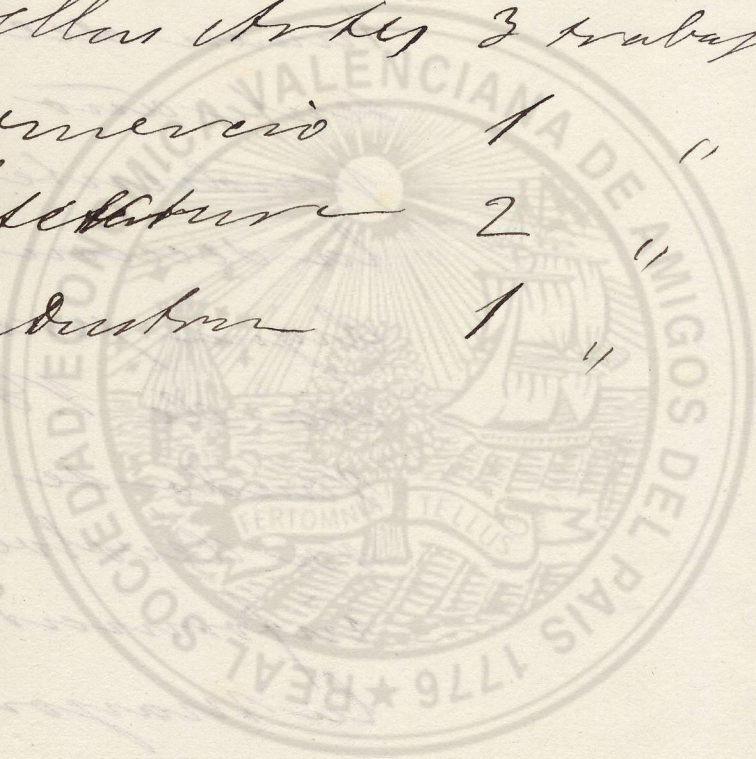 ellas Artes 3 trabaj
omercio 1 "
2 "
dustria 1 "
REAL SOCIEDAD ECONOMICA VALENCIANA DE AMIGOS DEL PAIS 1776 ★
FERT OMNIA TELLUS